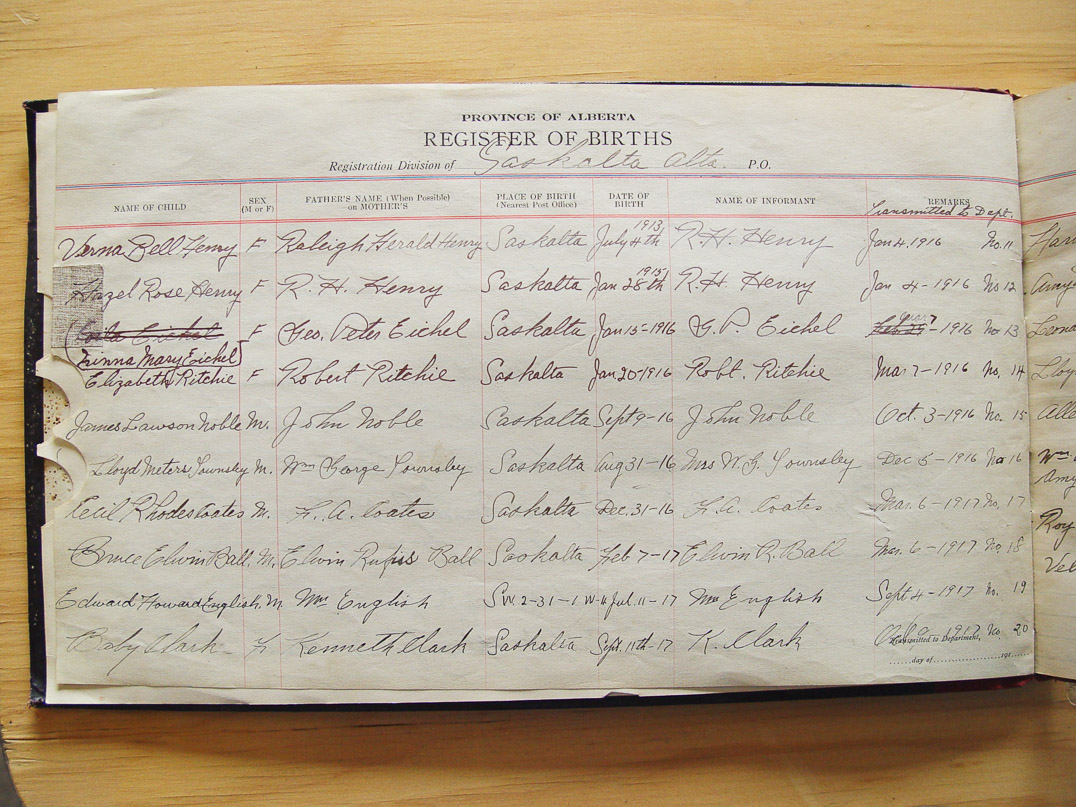 PROVINCE OF ALBERTA
REGISTER OF BIRTHS
Registration Division of Saskalta Alta. P.O.
NAME OF CHILD SEX (M or F) FATHER'S NAME (When Possible) or MOTHER'S PLACE OF BIRTH (Nearest Post Office) DATE OF BIRTH NAME OF INFORMANT REMARKS Transmitted to Dept.
Verna Bell Henry F Raleigh Herald Henry Saskalta July 4th 1913 R.H. Henry Jan 4, 1916 No. 11
Hazel Rose Henry F R. H. Henry Saskalta Jan 28th 1915 R.H. Henry Jan 4-1916 No 12
Eichel F Geo. Peter Eichel Saskalta Jan 15-1916 G. P. Eichel 7-1916 No 13
Minna Mary Eichel
Elizabeth Ritchie F Robert Ritchie Saskalta Jan 20-1916 Robt. Ritchie Mar 7-1916 No. 14
James Lawson Noble M. John Noble Saskalta Sept 9-16 John Noble Oct. 3-1916 No. 15
Lloyd Meters Townsley M. Wm George Townsley Saskalta Aug 31-16 Mrs W. G. Townsley Dec 5-1916 No 16
Cecil Rhodes Coates M. F. A. Coates Saskalta Dec. 31-16 F. A. Coates Mar. 6-1917 No. 17
Bruce Elwin Ball. M. Elwin Rufus Ball Saskalta Feb 7-17 Elwin R. Ball Mar. 6-1917 No. 18
Edward Howard English. M Wm English SW. 2-31-1 W-4 Jul. 11-17 Wm English Sept 4-1917 No. 19
Baby Clark F Kenneth Clark Saskalta Sept. 11th-17 K. Clark 1917 No. 20
Transmitted to Department,
day of 191